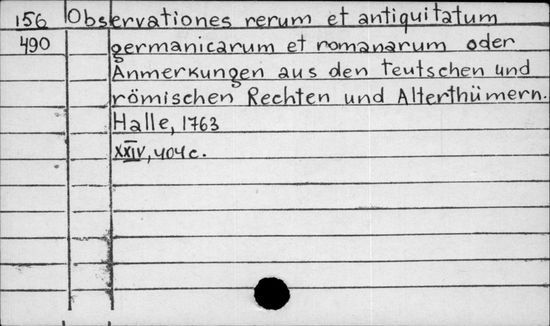 156 Observationes rerum et antiquitatum
490 germanicarum et romanarum oder
Anmerkungen aus den teutschen und
römischen Rechten und Alterthümern.
Halle, 1763
XXIV, 404 c.